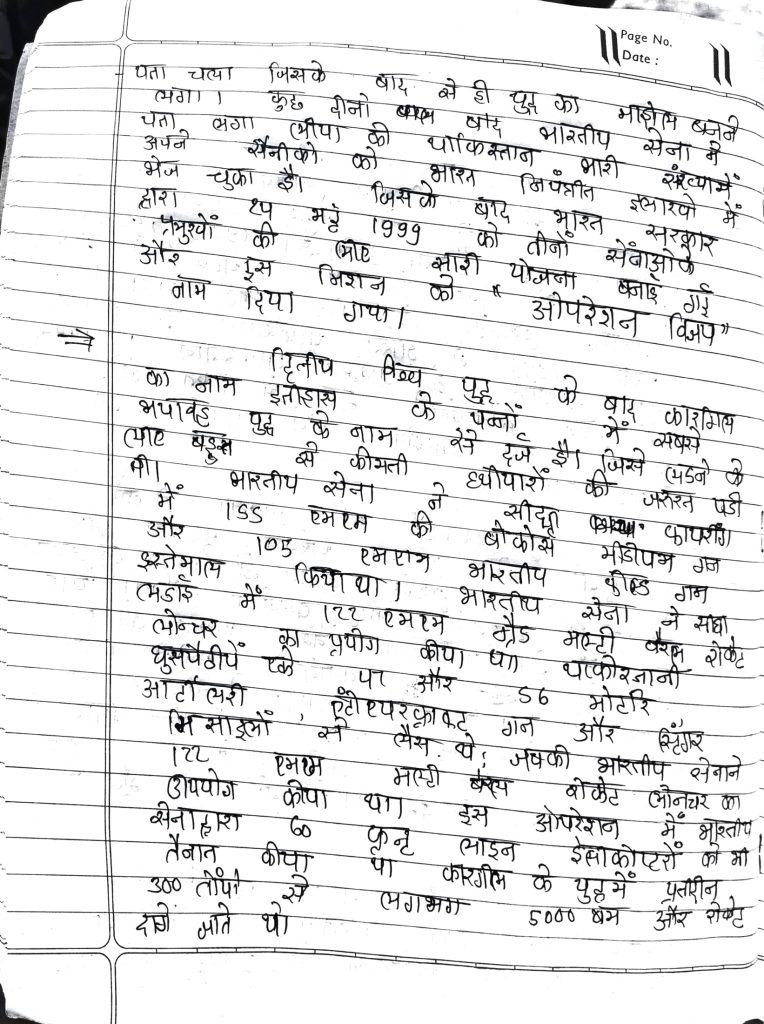 Page No.
Date :
पता चला जिसके बाद से ही युद्ध का माहोल बनने
लगा। कुछ दीनो बाद भारतीय सेना ने
पता लगा लीया की पाकिस्तान भारी संख्यामें
अपने सैनीको को भारत नियंत्रीत इलाखो में
भेज चुका है। जिसके बाद भारत सरकार
द्वारा मई 1999 को तीनों सेनाओके
प्रमुखों की सारी योजना बनाई गई
और इस मिशन को " ओपरेशन विजय"
नाम दिया गया।
⇒ द्वितीय विश्व युद्ध के बाद कारगिल
का नाम इतीहास के पन्नों में सबसे
भयावह युद्ध के नाम से दर्ज है। जिसे लडने के
लीए से कीमती हथीयारों की जरुरत पडी
थी। भारतीय सेना ने सीद्धा फायरींग
में 155 एमएम की बोफोर्स मीडीयम गन
और 105 एमएम भारतीय फील्ड गन
इस्तेमाल किया था। भारतीय सेना ने
लडाई में 122 एमएम ग्रैड मल्टी बैरल रोकेट
लोन्चर का प्रयोग कीया था पाकीस्तानी
घुसपैठीये एके और 56 मोर्टार
आर्टालरी एंटीएयरक्राफ्ट गन और स्ट्रिंगर
मिसाइलों से लैस थे, जबकी भारतीय सेनाने
122 एमएम मल्टी बैरल रोकेट लोनचर का
उपयोग कीया था। इस ओपरेशन में भारतीय
सेनाद्वारा 60 फ्रन्ट लाइन हेलीकोप्टरों को भी
तैनात कीया था कारगील के युद्धमें प्रतिदीन
300 तोंपो से लगभग 5000 बम और रोकेट
दागे जाते थे।